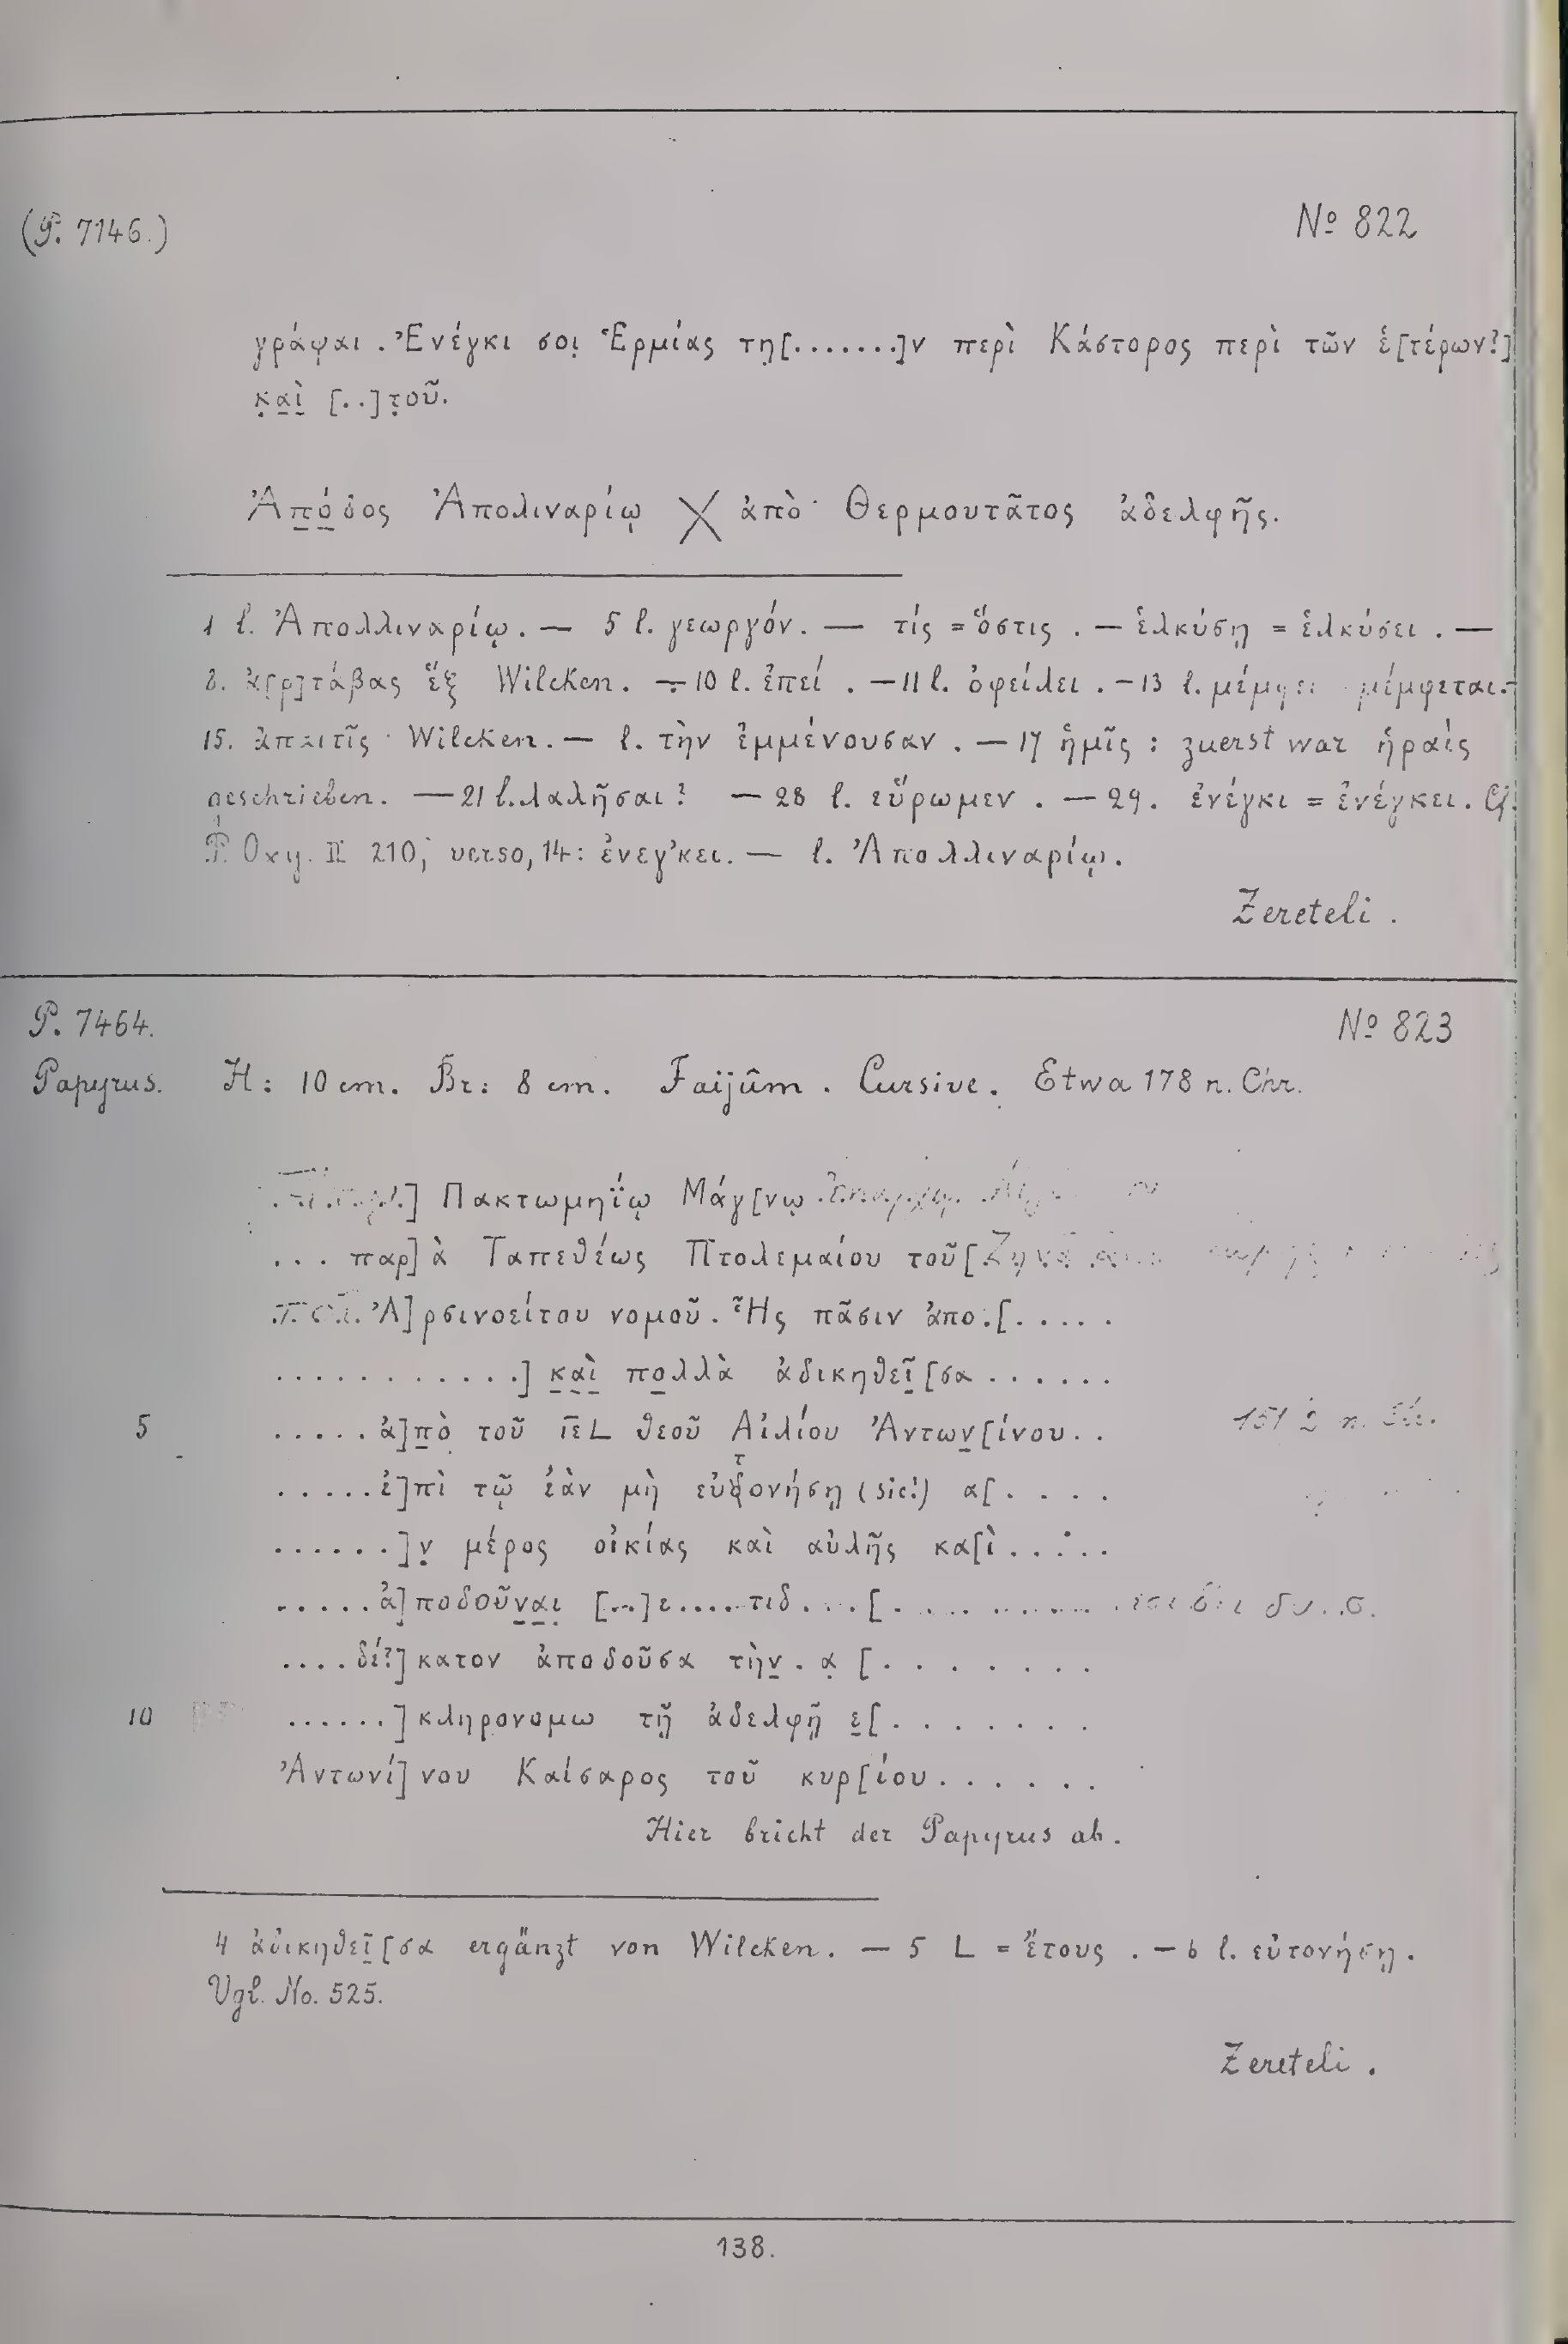 (P. 7146.) № 822
γράψαι . Ἐνέγκι σοι̣ Ἑρμίας τη̣[.......]ν περὶ Κάστορος περὶ τῶν ἑ[τέρων?]
κ̣α̣ὶ̣ [..]τ̣οῦ.
Ἀπόδος Ἀπολιναρίῳ ╳ ἀπὸ Θερμουτᾶτος ἀδελφῆς.
1 l. Ἀπολλιναρίῳ. — 5 l. γεωργόν. — τίς = ὅστις . — ἑλκύσῃ = ἑλκύσει . —
8. ἀ[ρ]τάβας ἕξ Wilcken. — 10 l. ἐπεί . — 11 l. ὀφείλει . — 13 l. μέμφεται.—
15. ἀπαιτῖς Wilcken. — l. τὴν ἐμμένουσαν . — 17 ἡμῖς : zuerst war ἡραὶς
geschrieben. — 21 l. λαλῆσαι? — 28 l. εὕρωμεν . — 29. ἐνέγκι = ἐνέγκει. Cf.
P. Oxy. II 210, verso, 14: ἐνεγ’κει. — l. Ἀπολλιναρίῳ.
Zereteli .
P. 7464. № 823
Papyrus. H: 10 cm. Br: 8 cm. Faijûm . Cursive. Etwa 178 n. Chr.
] Πακτωμηΐῳ Μάγ[νῳ
. . . παρ]ὰ Ταπεθέως Πτολεμαίου τοῦ[
Ἀ]ρσινοείτου νομοῦ. Ἧς πᾶσιν ἀπο.[.....
............] κ̣α̣ὶ̣ πο̣λλὰ ἀδικηθεῖ̣[σα......
5 .....ἀ]π̣ὸ τοῦ ι̅ε̅ L θεοῦ Αἰλίου Ἀντων̣[ίνου..
.....ἐ]πὶ τῷ ἐὰν μὴ εὐξτονήσῃ (sic!) α[....
......]ν̣ μέρος οἰκίας καὶ αὐλῆς κα[ὶ.....
.....ἀ]ποδοῦν̣α̣ι̣ [..]ε.....τιδ....[
....δέ?]κατον ἀποδοῦσα τὴν̣ . α̣ [.......
10 ......]κληρονομω τῇ ἀδελφῇ ε̣[.......
Ἀντωνί]νου Καίσαρος τοῦ κυρ[ίου......
Hier bricht der Papyrus ab.
4 ἀδικηθεῖ̣[σα ergänzt von Wilcken. — 5 L = ἔτους . — 6 l. εὐτονήσῃ.
Vgl. No. 525.
Zereteli .
138.